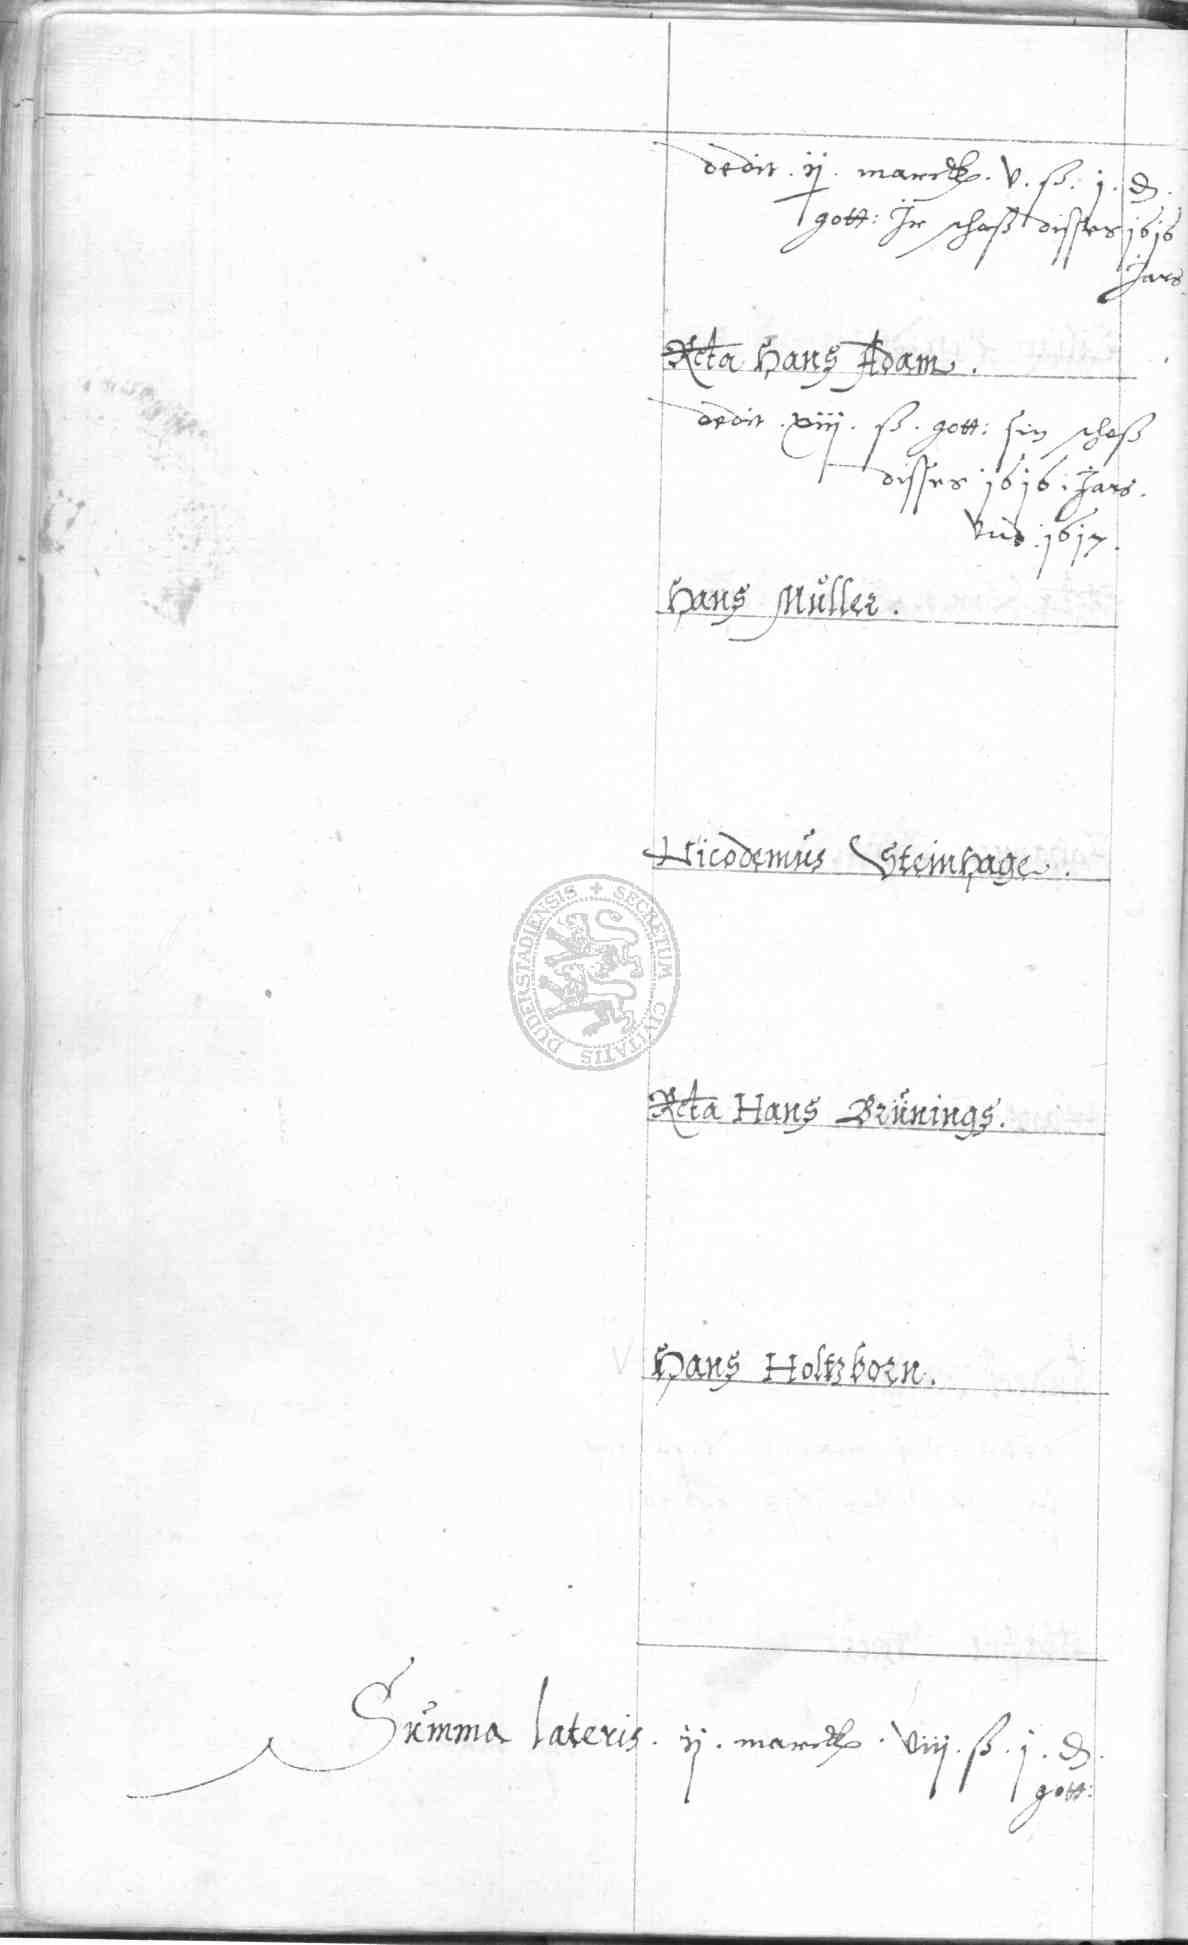 dedit . ij . marck . v . ß . j . d .
gott: Jr schoß disses 1616
Jars
Rcta Hans Adam .
dedit . xiij . ß . gott: sin schoß
disses 1616 . Jars .
Vnd . 1617 .
Hans Müller .
Nicodemus Steinhage .
DUDERSTADIENSIS + SECRETUM CIVITATIS
Rcta Hans Brünings .
Hans Holtzborn .
Summa lateris . ij . marck . viij . ß . j . d .
gott: